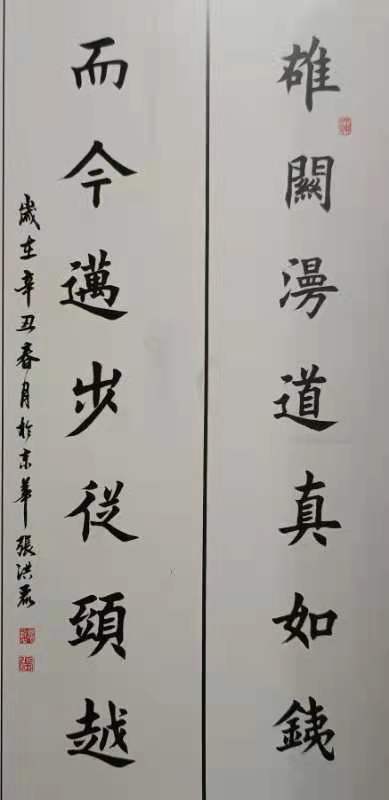 雄闗漫道真如銕
而今邁步從頭越
歲在辛丑春月於京華張洪